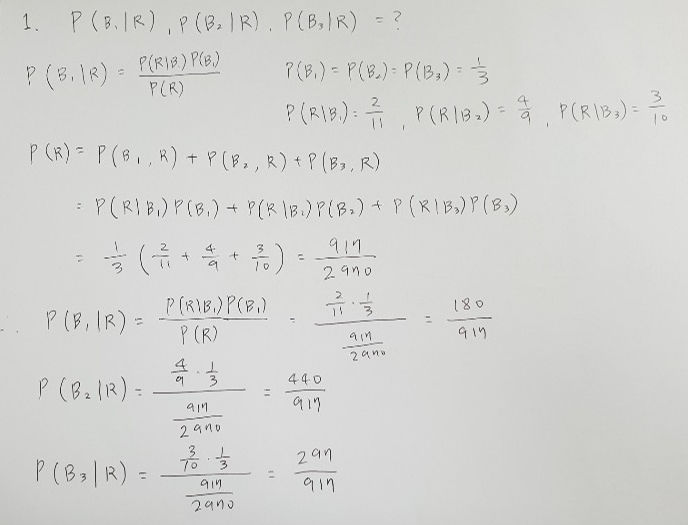 1. P(B₁|R), P(B₂|R), P(B₃|R) = ?
P(B₁|R) = P(R|B₁)P(B₁) / P(R)    P(B₁) = P(B₂) = P(B₃) = 1/3
P(R|B₁) = 2/11, P(R|B₂) = 4/9, P(R|B₃) = 3/10
P(R) = P(B₁, R) + P(B₂, R) + P(B₃, R)
= P(R|B₁)P(B₁) + P(R|B₂)P(B₂) + P(R|B₃)P(B₃)
= 1/3 (2/11 + 4/9 + 3/10) = 917/2970
∴ P(B₁|R) = P(R|B₁)P(B₁) / P(R) = (2/11 · 1/3) / (917/2970) = 180/917
P(B₂|R) = (4/9 · 1/3) / (917/2970) = 440/917
P(B₃|R) = (3/10 · 1/3) / (917/2970) = 297/917